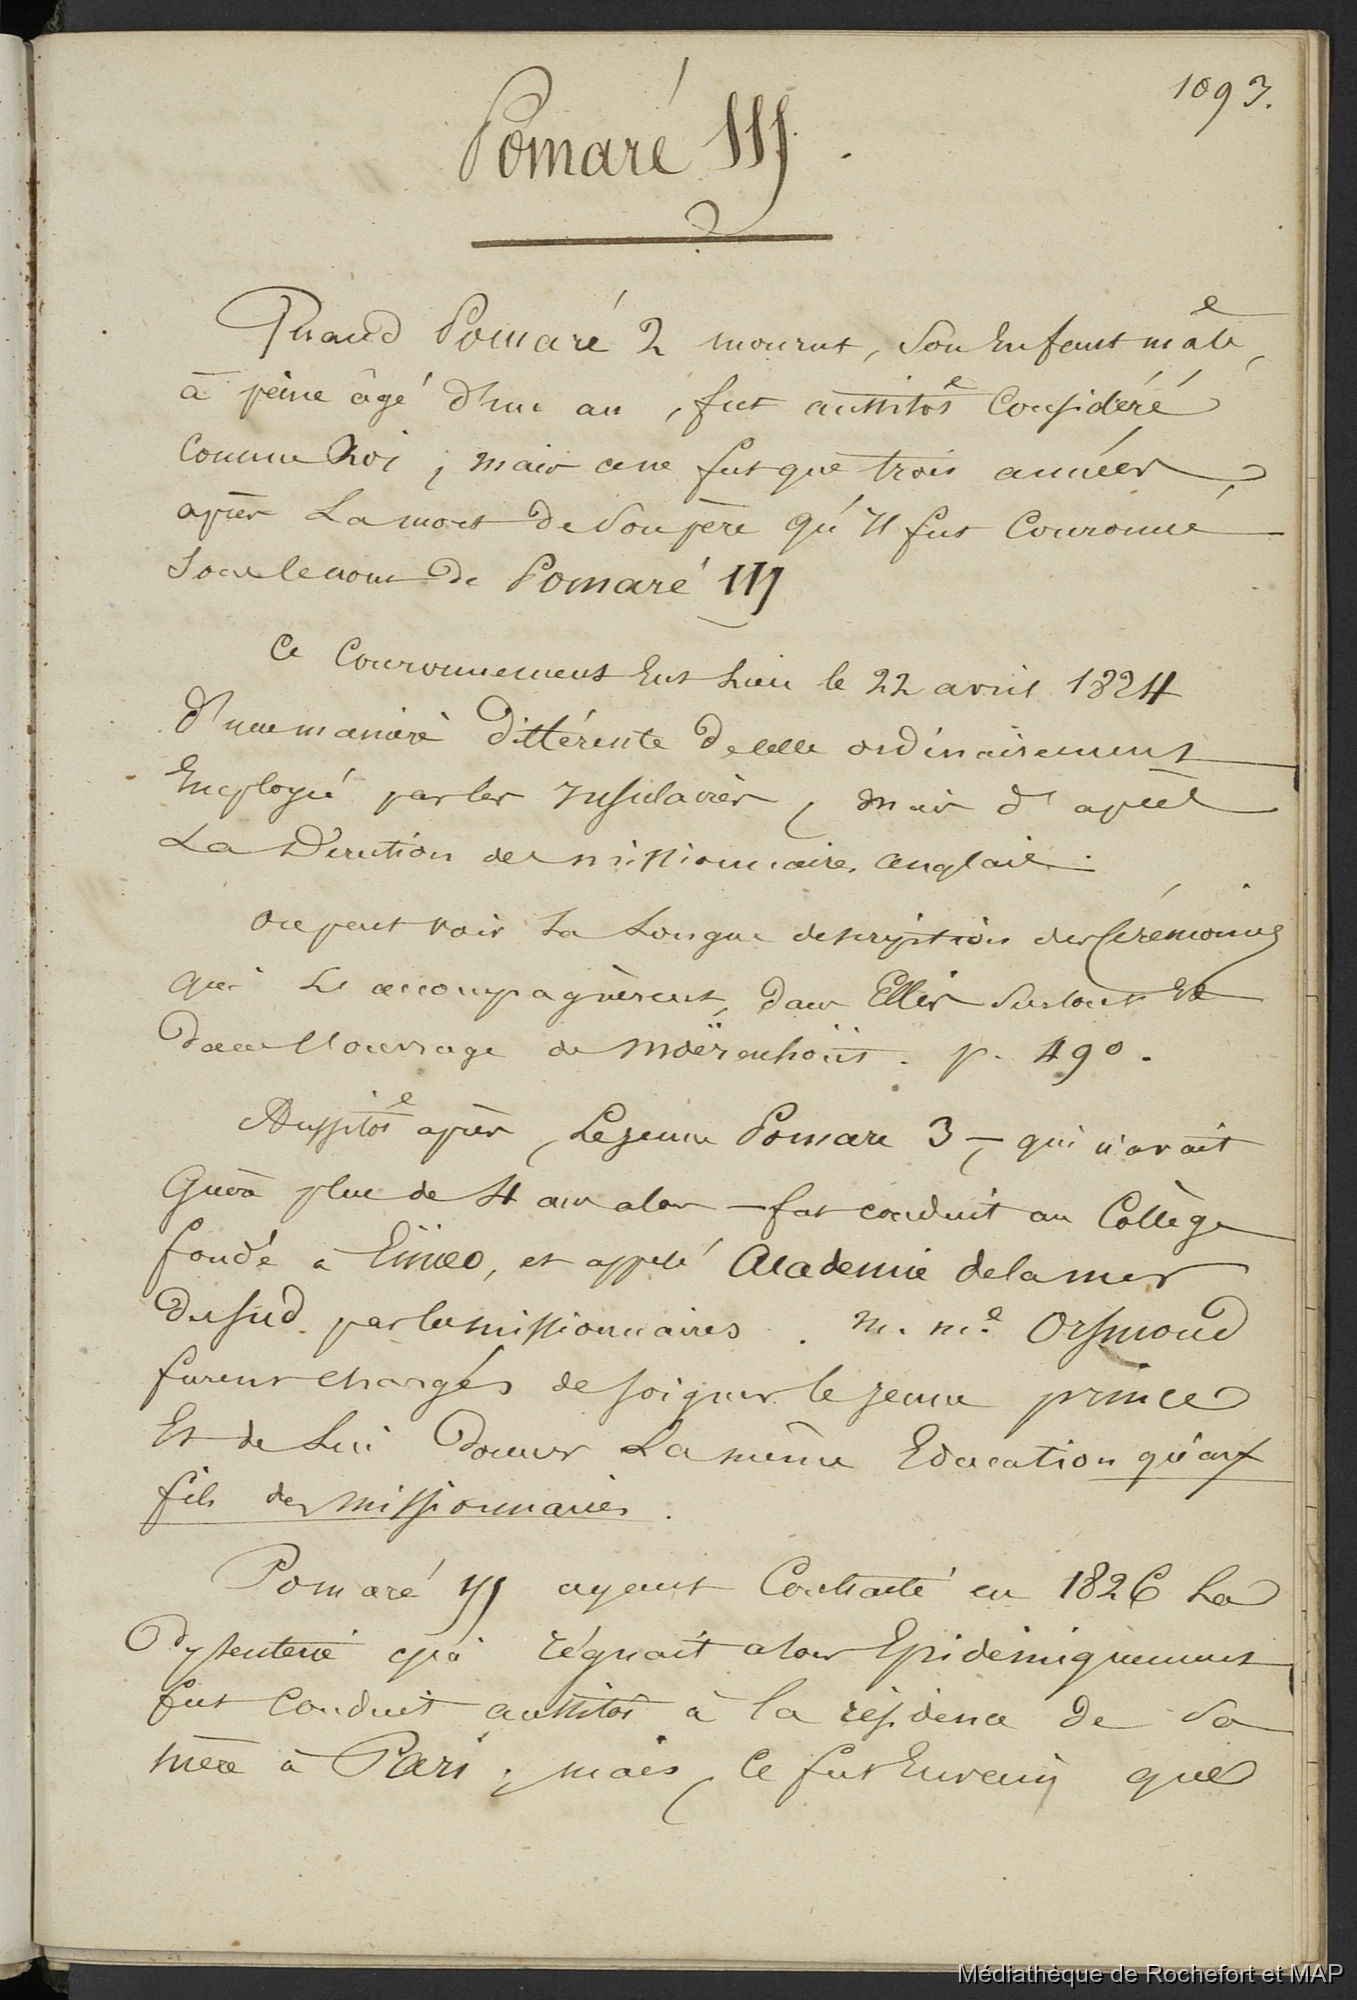 1093.
Pomaré III.
Quand Pomaré 2 mourut, son Enfant mâle,
à peine âgé d'un an, fut aussitôt Considéré
Comme Roi ; mais ce ne fut que trois années
après La mort de Son père qu'Il fut Couronné
Sous le nom de Pomaré III
Ce Couronnement Eut Lieu le 22 avril 1824
d'une manière différente de celle ordinairement
Employée par les Insulaires, mais d'après
La Direction des missionnaires anglais.
on peut voir La Longue description des Cérémonies
qui Le accompagnèrent, dans Ellis Surtout Et
dans l'ouvrage de Moërenhoüt. p. 490.
Aussitôt après, Le jeune Pomare 3 – qui n'avait
Guère plus de 4 ans alors – fut conduit au Collège
fondé à Eimeo, et appelé Academie de la mer
du Sud par les missionnaires. M. Me Orsmond
furent chargés de soigner le jeune prince
Et de Lui donner La même Education qu'aux
fils des missionnaires.
Pomaré III ayant Contracté en 1826 La
Dyssenterie qui régnait alors Epidémiquement
fut Conduit aussitôt à la résidence de Sa
mère à Pari ; mais, Ce fut En vain que
Médiathèque de Rochefort et MAP